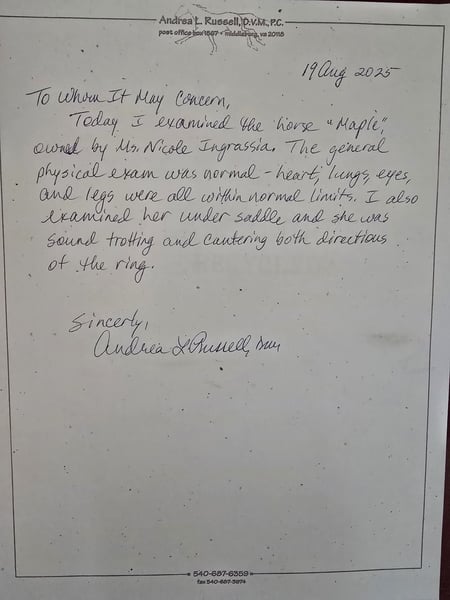 Andrea L. Russell, D.V.M., P.C.
post office box 1567 • middleburg, va 20118
19 Aug 2025
To Whom It May Concern,
Today I examined the horse "Maple",
owned by Ms. Nicole Ingrassia. The general
physical exam was normal - heart, lungs, eyes,
and legs were all within normal limits. I also
examined her under saddle and she was
sound trotting and cantering both directions
of the ring.
Sincerly,
Andrea L Russell, DVM
540-687-6359
fax 540-687-3874